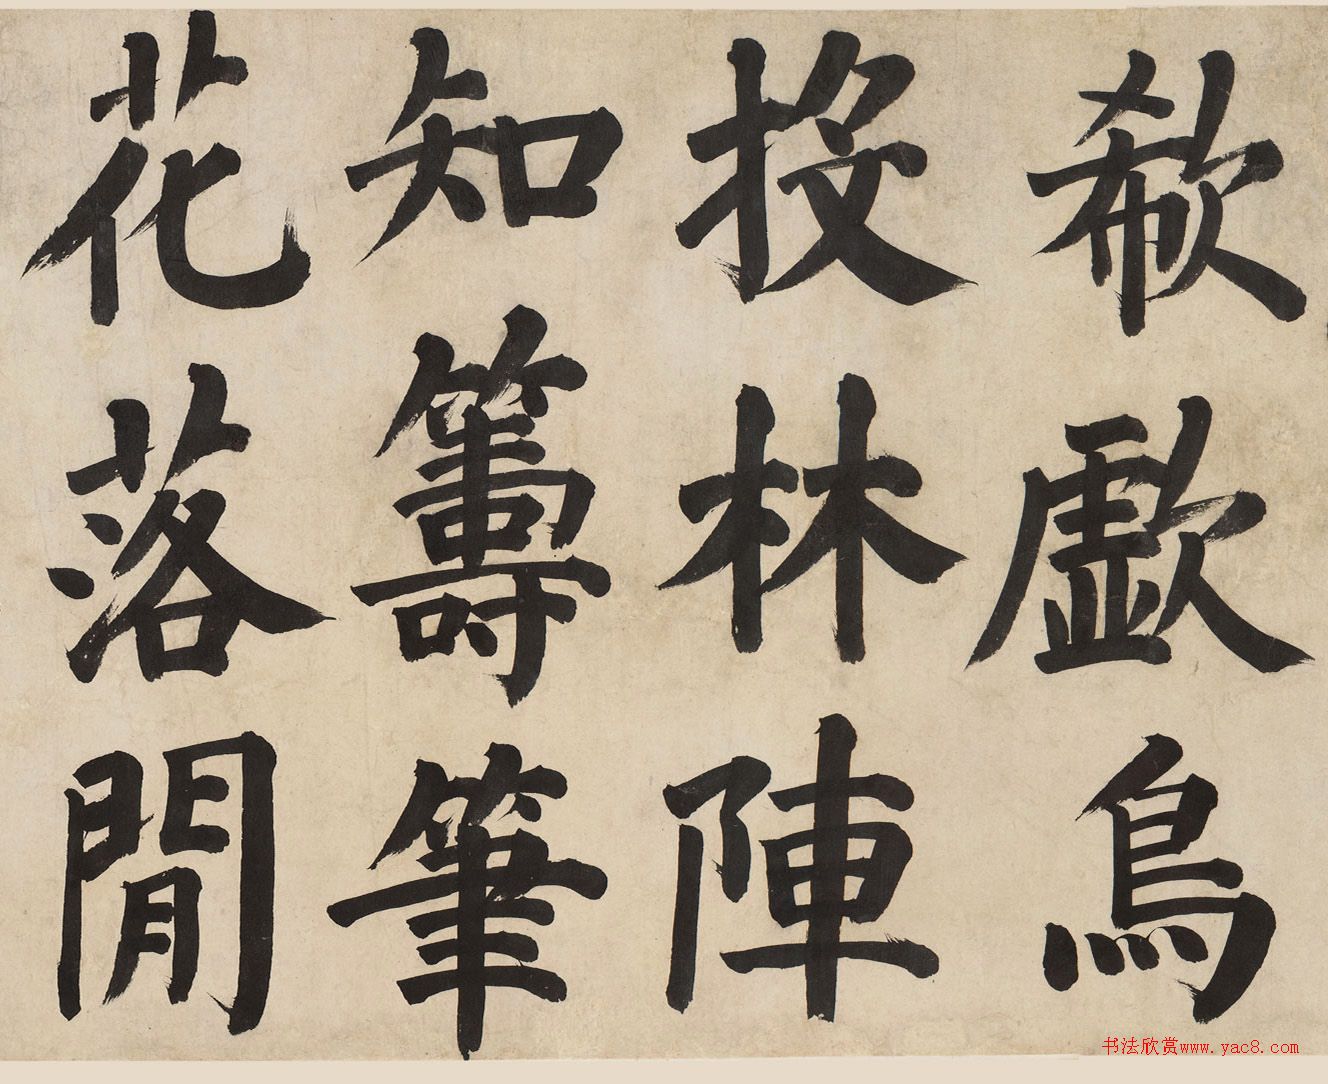 欷歔鳥
投林陣
知籌筆
花落閒
书法欣赏www.yac8.com